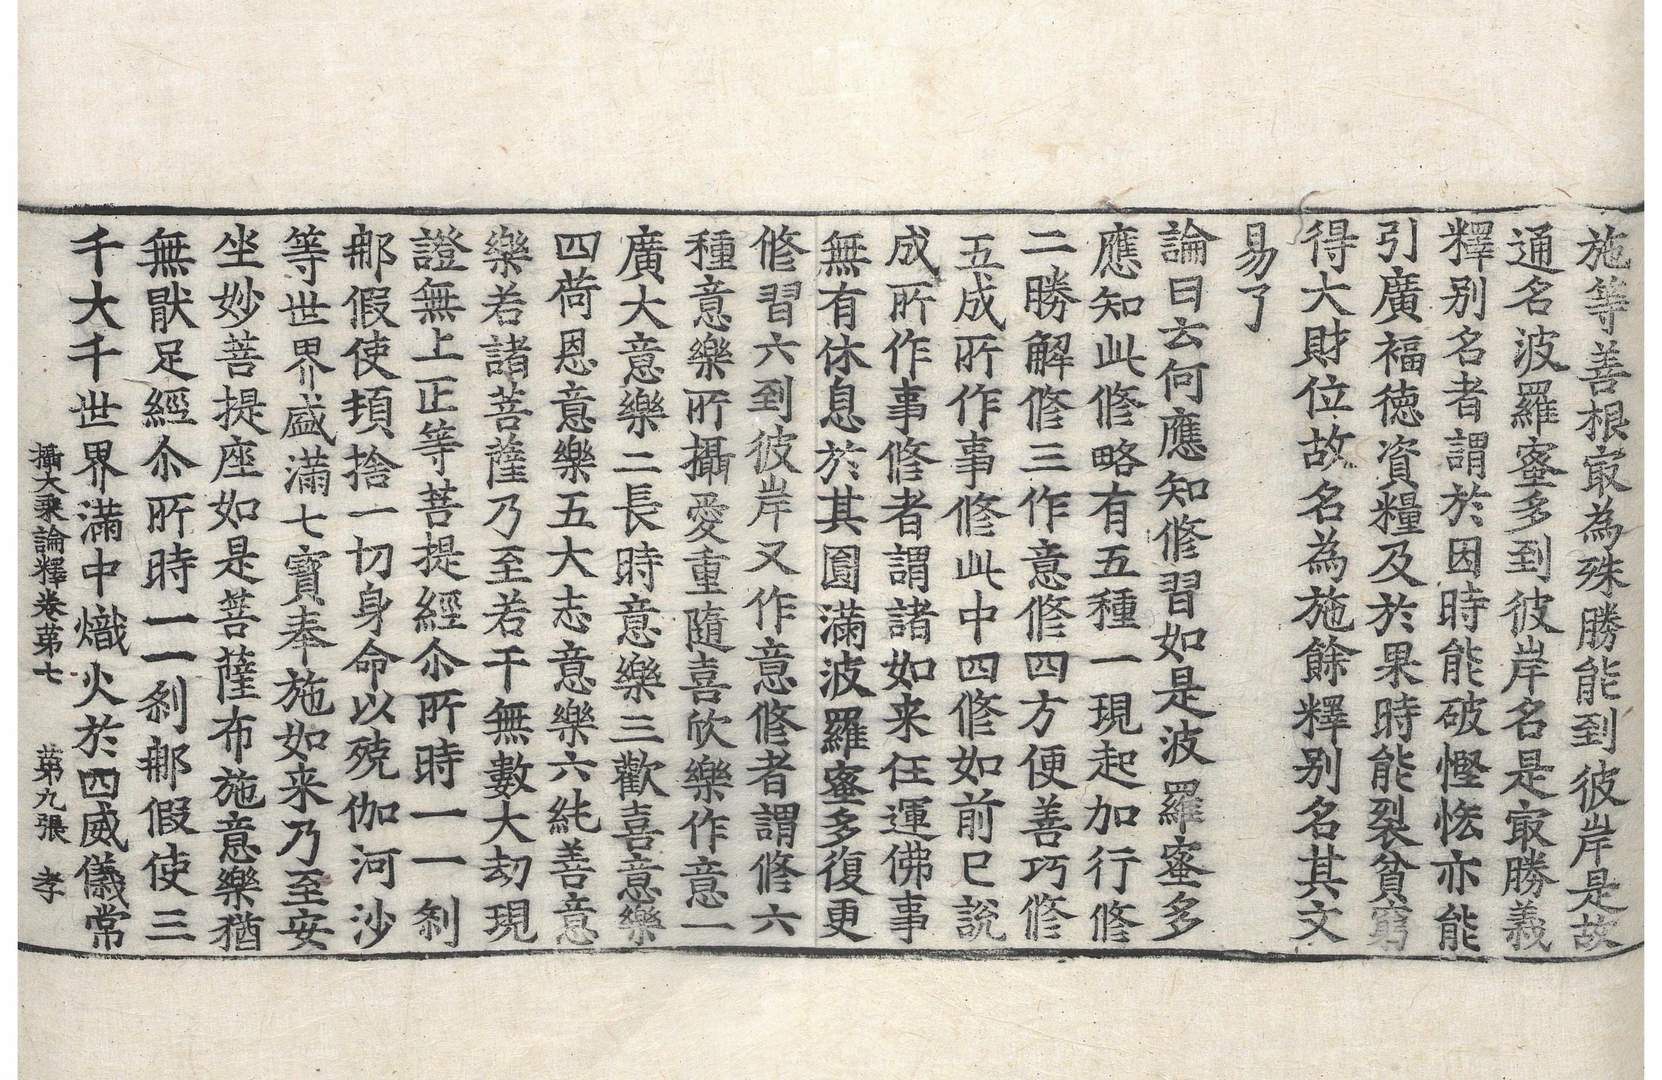 施等善根㝡為殊勝能到彼岸是故
通名波羅蜜多到彼岸名是㝡勝義
釋別名者謂於因時能破慳悋亦能
引廣福德資糧及於果時能裂貧窮
得大財位故名為施餘釋別名其文
易了
論曰云何應知修習如是波羅蜜多
應知此修略有五種一現起加行修
二勝解修三作意修四方便善巧修
五成所作事修此中四修如前已說
成所作事修者謂諸如来任運佛事
無有休息於其圓滿波羅蜜多復更
修習六到彼岸又作意修者謂修六
種意樂所攝愛重隨喜欣樂作意一
廣大意樂二長時意樂三歡喜意樂
四荷恩意樂五大志意樂六純善意
樂若諸菩薩乃至若干無數大劫現
證無上正等菩提經尒所時一一刹
那假使頓捨一切身命以殑伽河沙
等世界盛滿七寶奉施如来乃至安
坐妙菩提座如是菩薩布施意樂猶
無猒足經尒所時一一刹那假使三
千大千世界滿中熾火於四威儀常
攝大乘論釋卷第七 第九張 孝